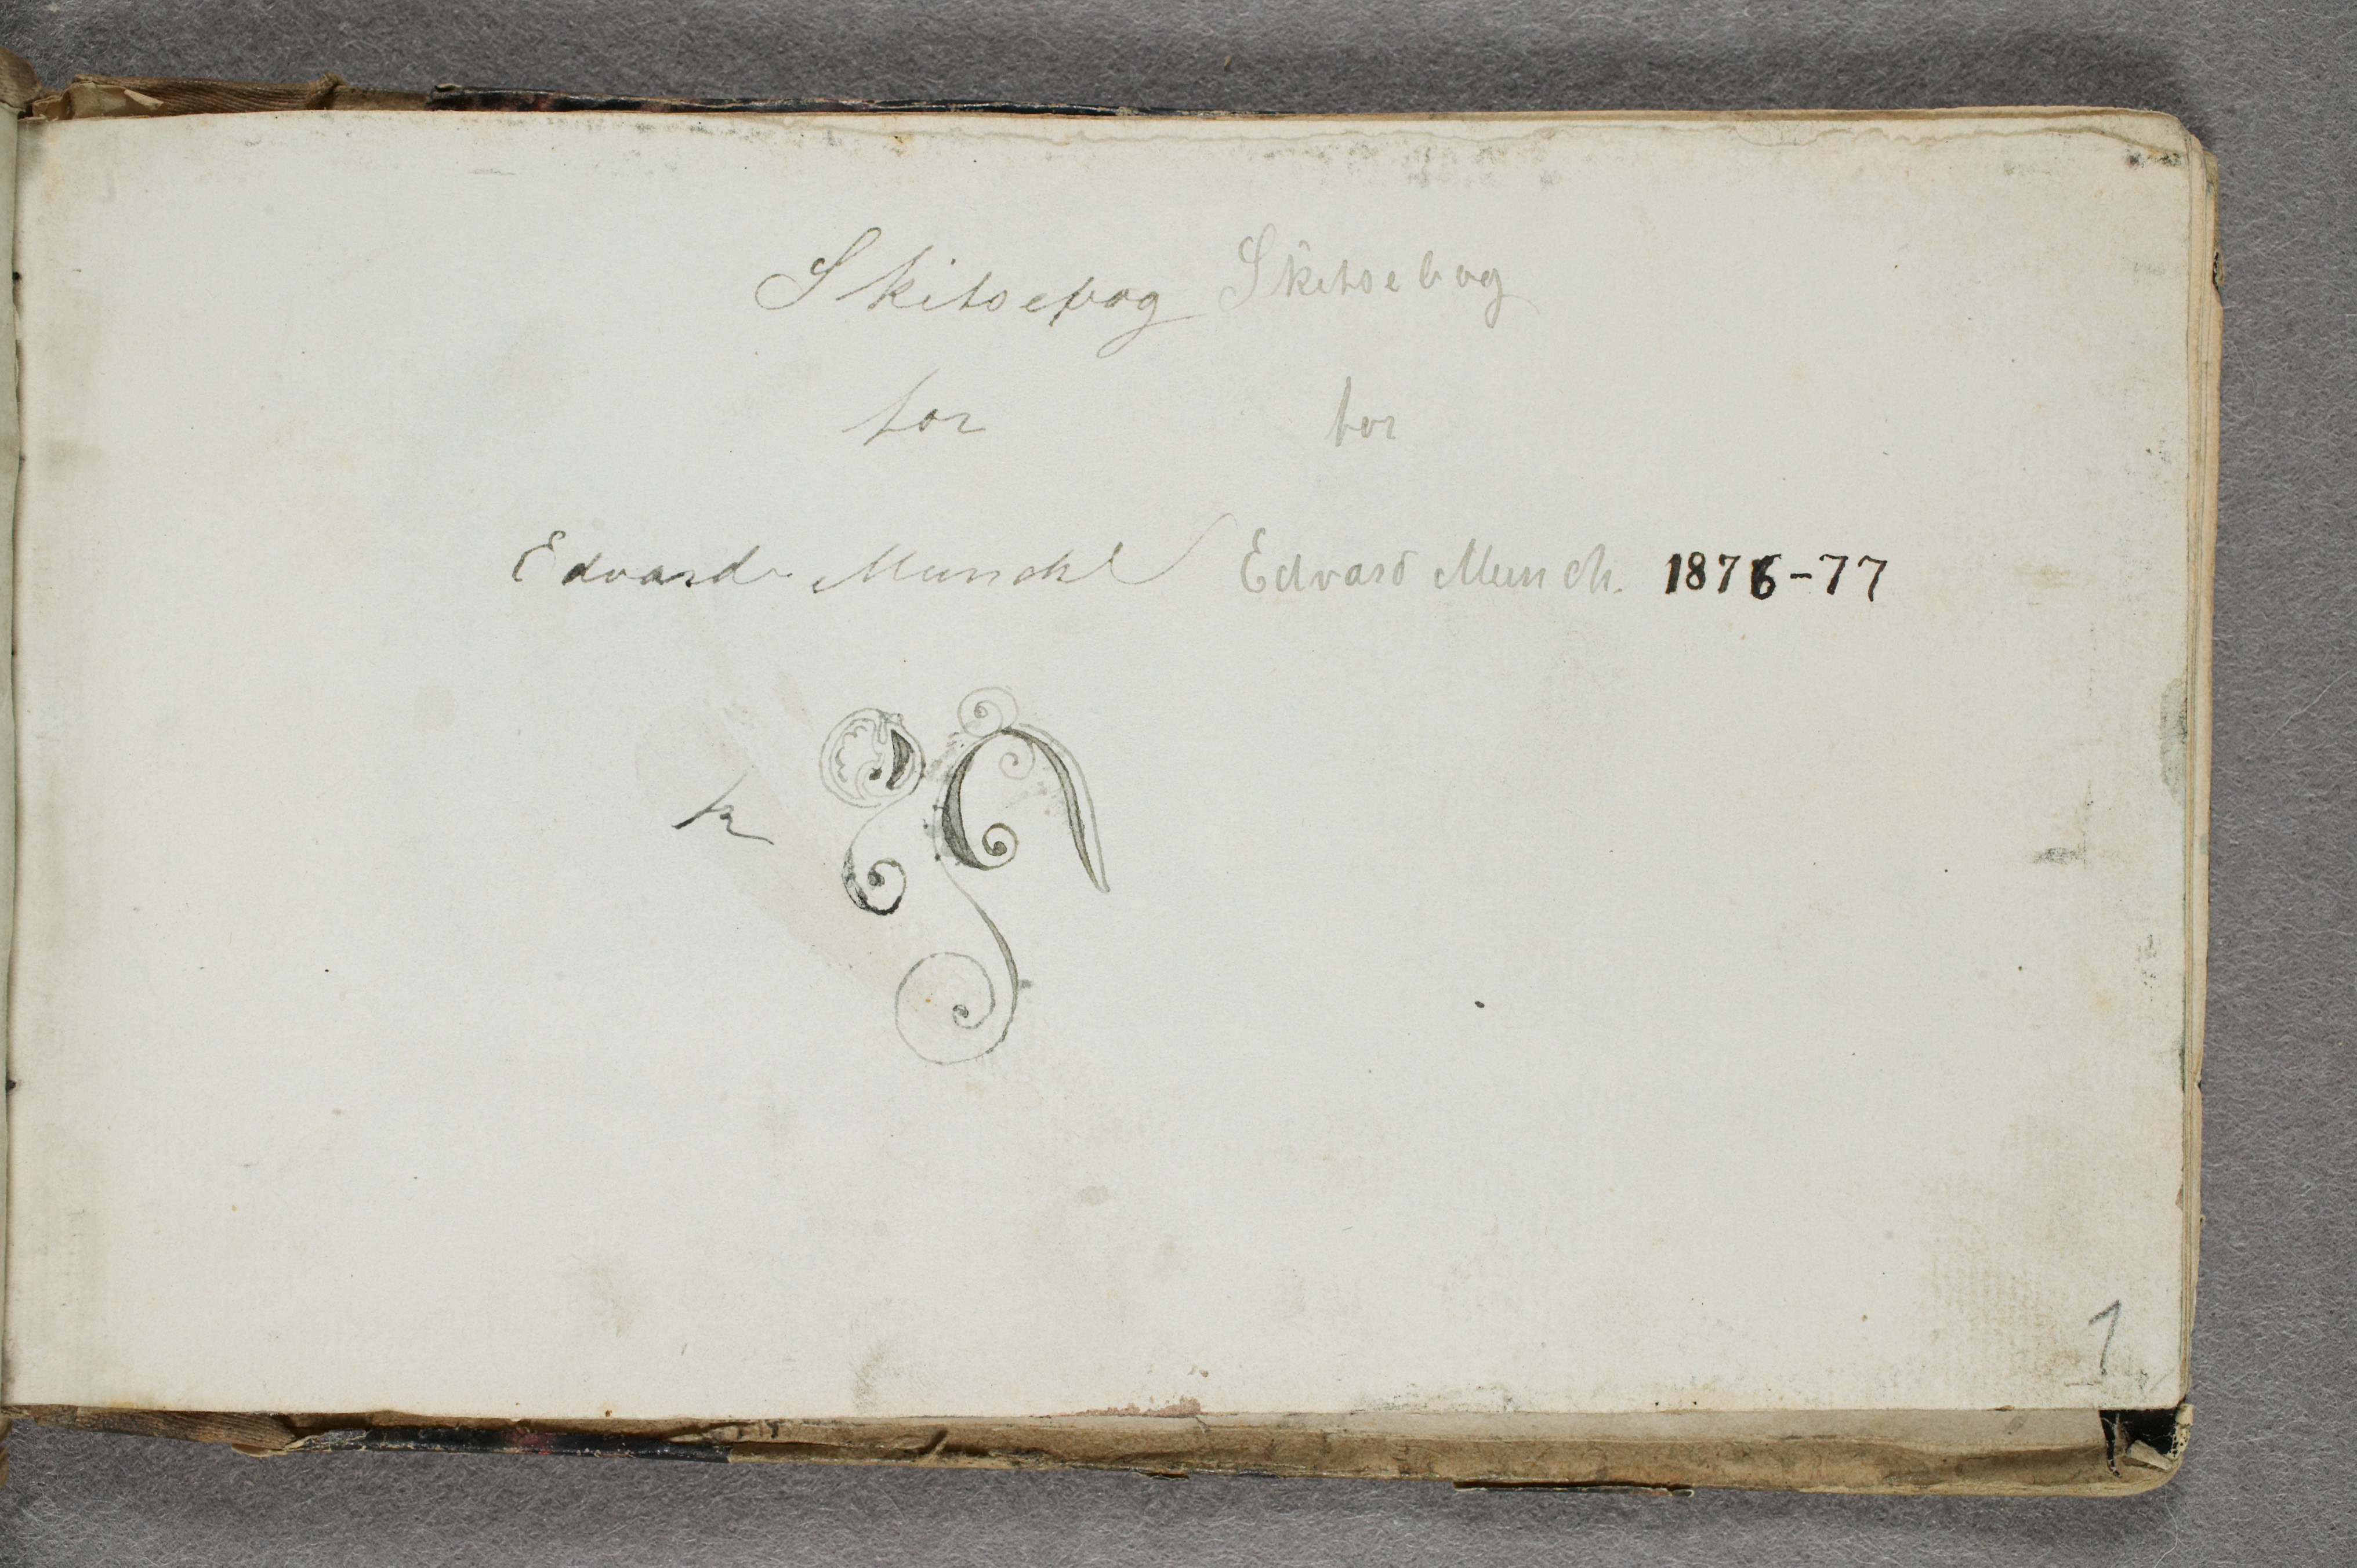 Skitsebog Skitsebog
for for
Edvard Munch Edvard Munch. 1876-77
1